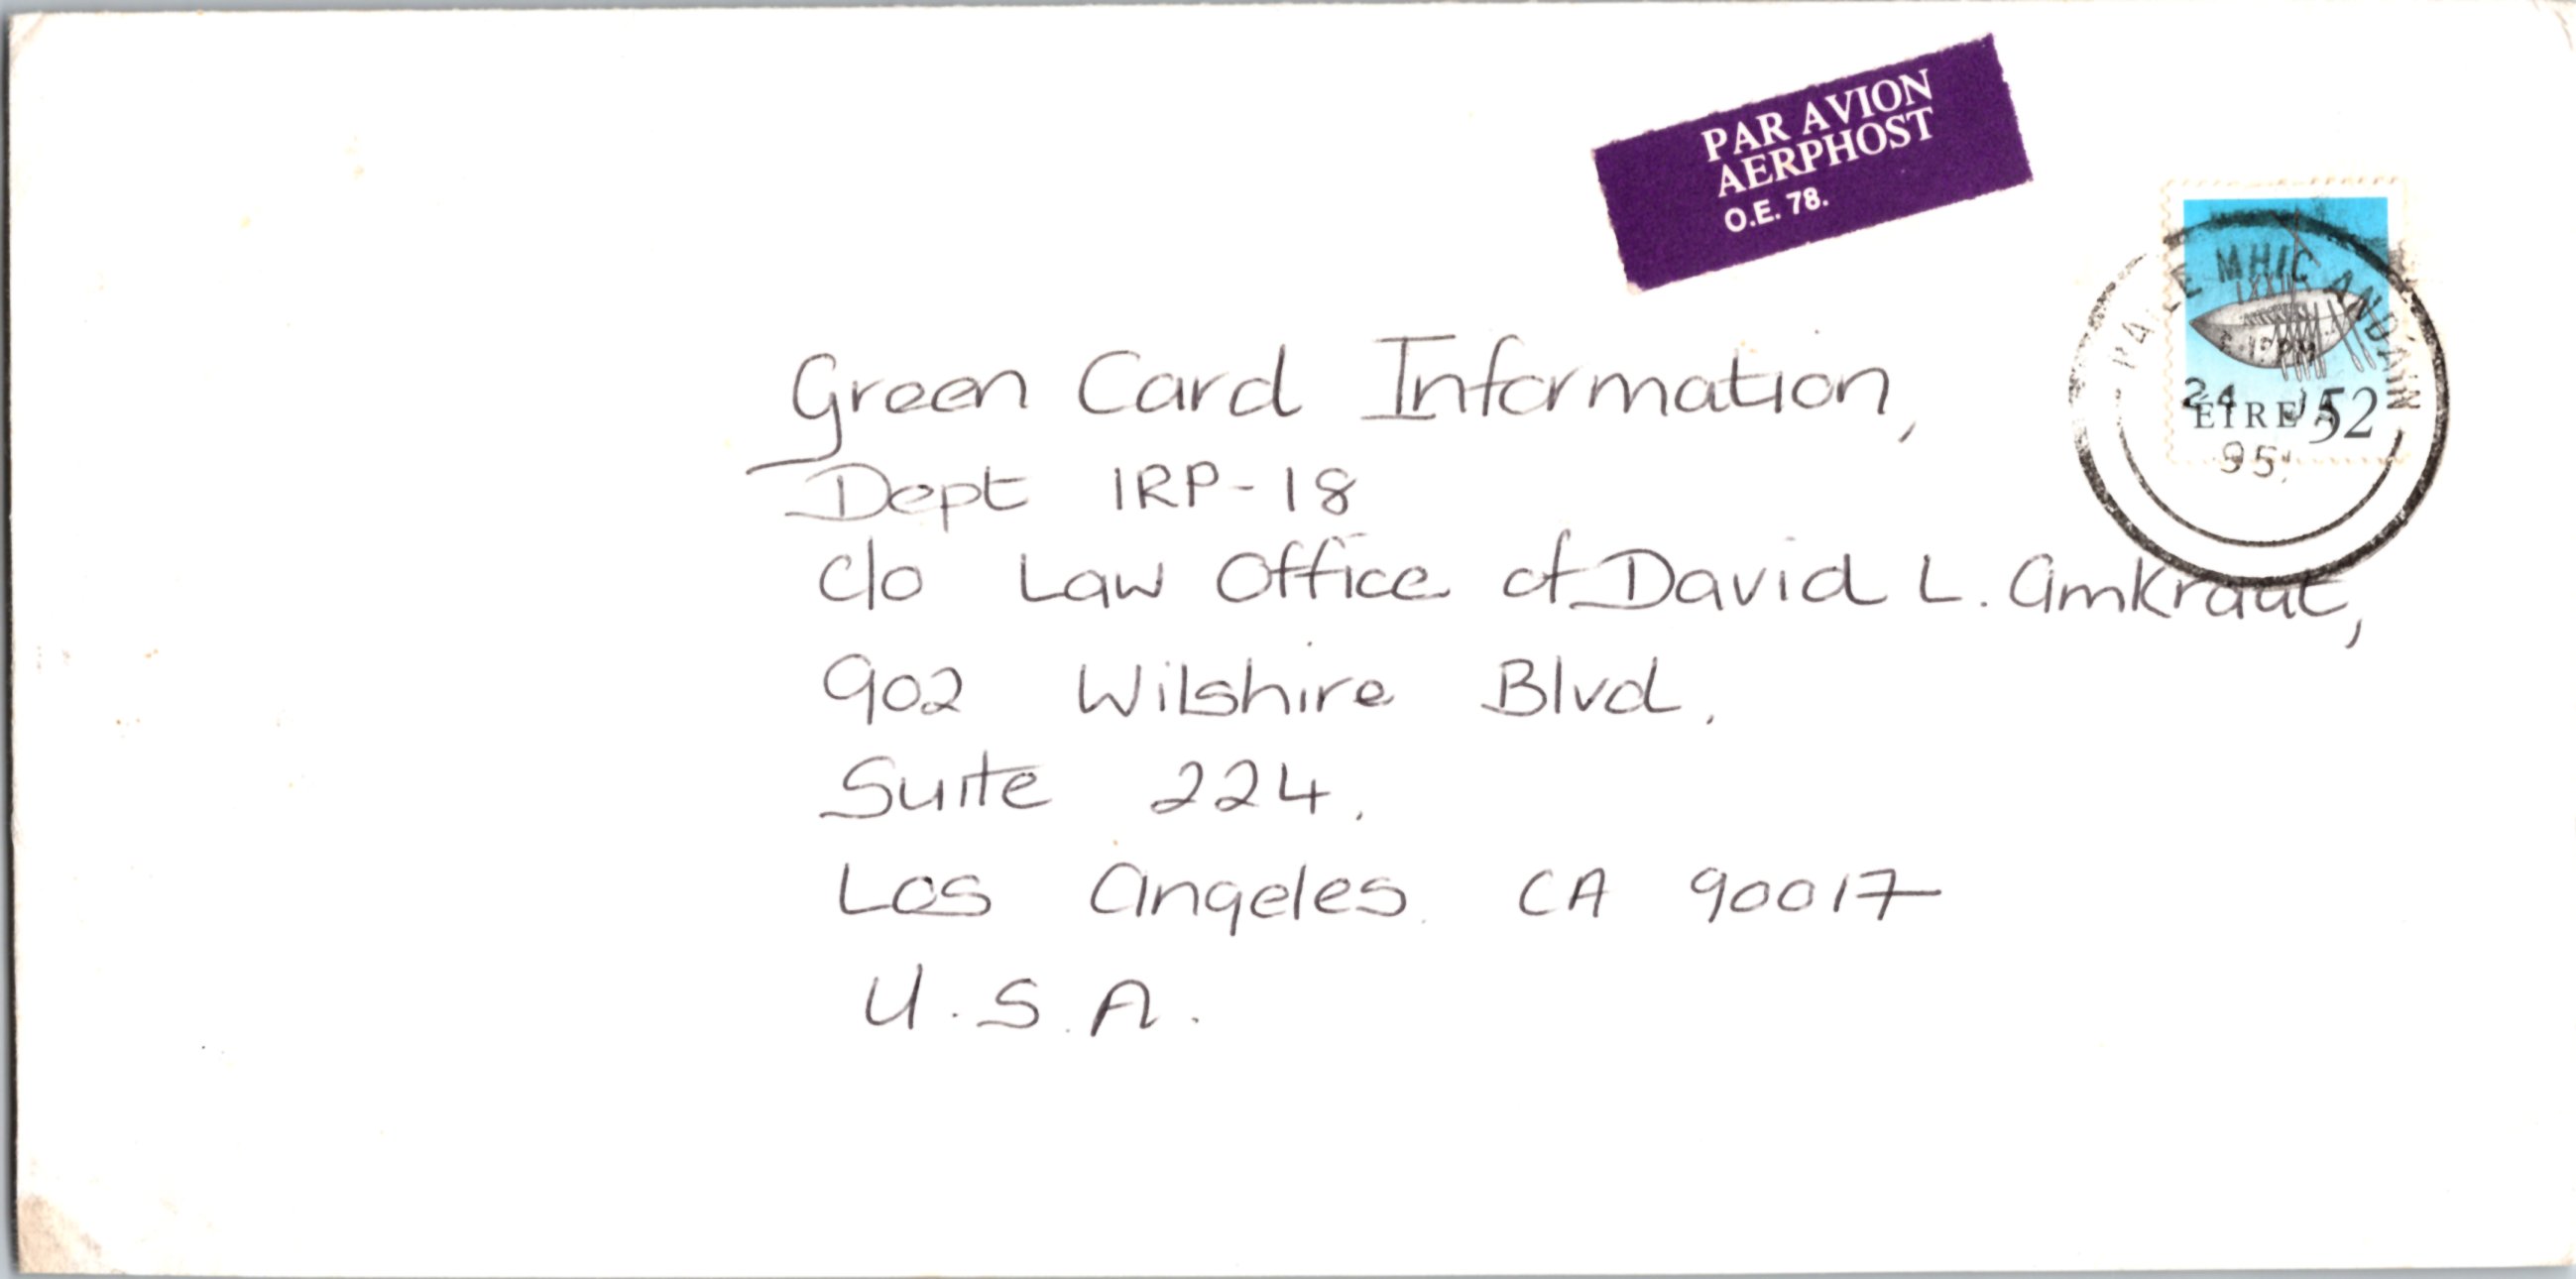 PAR AVION
AERPHOST
O.E. 78.
MHIC ANDAIN
24
95
EIRE 52
Green Card Information,
Dept IRP-18
c/o Law Office of David L. Amkraut,
902 Wilshire Blvd.
Suite 224,
Los Angeles CA 90017
U.S.A.